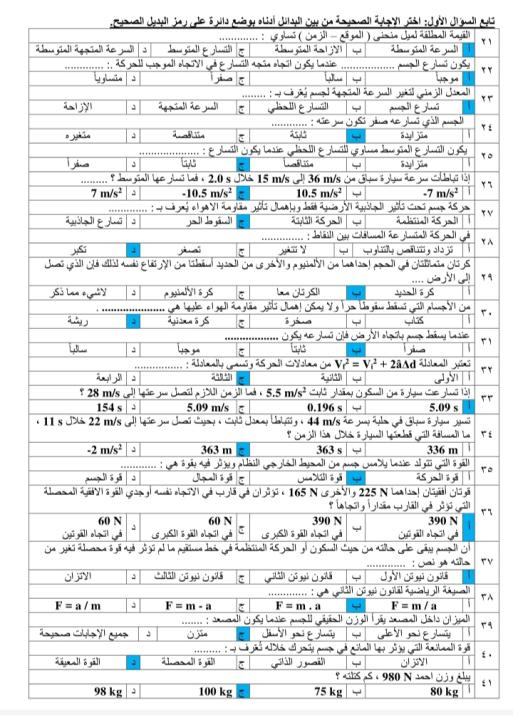 تابع السؤال الأول: اختر الإجابة الصحيحة من بين البدائل أدناه بوضع دائرة على رمز البديل الصحيح.
٢١ القيمة المطلقة لميل منحنى ( الموقع – الزمن ) تساوي : ..............
أ السرعة المتوسطة ب الازاحة المتوسطة ج التسارع المتوسط د السرعة المتجهة المتوسطة
٢٢ يكون تسارع الجسم ................ عندما يكون اتجاه متجه التسارع في الاتجاه الموجب للحركة .: ..............
أ موجباً ب سالباً ج صفراً د متساوياً
٢٣ المعدل الزمني لتغير السرعة المتجهة لجسم يُعرف بـ : ........
أ تسارع الجسم ب التسارع اللحظي ج السرعة المتجهة د الإزاحة
٢٤ الجسم الذي تسارعه صفر تكون سرعته : ............
أ متزايدة ب ثابتة ج متناقصة د متغيره
٢٥ يكون التسارع المتوسط مساوي للتسارع اللحظي عندما يكون التسارع : ................
أ متزايدة ب متناقصاً ج ثابتاً د صفراً
٢٦ إذا تباطأت سرعة سيارة سباق من 36 m/s إلى 15 m/s خلال 2.0 s ، فما تسارعها المتوسط ؟ .........
أ -7 m/s² ب 10.5 m/s² ج -10.5 m/s² د 7 m/s²
٢٧ حركة جسم تحت تأثير الجاذبية الأرضية فقط وبإهمال تأثير مقاومة الاهواء يُعرف بـ : ..............
أ الحركة المنتظمة ب الحركة الثابتة ج السقوط الحر د تسارع الجاذبية
٢٨ في الحركة المتسارعة المسافات بين النقاط : ..............
أ تزداد وتتناقص بالتناوب ب لا تتغير ج تصغر د تكبر
٢٩ كرتان متماثلتان في الحجم إحداهما من الألمنيوم والأخرى من الحديد أسقطتا من الإرتفاع نفسه لذلك فإن الذي تصل
إلى الأرض ....
أ كرة الحديد ب الكرتان معا ج كرة الألمنيوم د لاشيء مما ذكر
٣٠ من الأجسام التي تسقط سقوطاً حراً ولا يمكن إهمال تأثير مقاومة الهواء عليها هي ................ .
أ كتاب ب صخرة ج كرة معدنية د ريشة
٣١ عندما يسقط جسم باتجاه الأرض فإن تسارعه يكون ....................
أ صفراً ب ثابتاً ج موجباً د سالباً
٣٢ تعتبر المعادلة Vf² = Vi² + 2āΔd من معادلات الحركة وتسمى بالمعادلة : ..............
أ الأولى ب الثانية ج الثالثة د الرابعة
٣٣ إذا تسارعت سيارة من السكون بمقدار ثابت 5.5 m/s² ، فما الزمن اللازم لتصل سرعتها إلى 28 m/s ؟
أ 5.09 s ب 0.196 s ج 5.09 m/s د 154 s
٣٤ تسير سيارة سباق في حلبة بسرعة 44 m/s ، وتتباطأ بمعدل ثابت ، بحيث تصل سرعتها إلى 22 m/s خلال 11 s ،
ما المسافة التي قطعتها السيارة خلال هذا الزمن ؟
أ 336 m ب 363 s ج 363 m د -2 m/s²
٣٥ القوة التي تتولد عندما يلامس جسم من المحيط الخارجي النظام ويؤثر فيه بقوة هي : ..............
أ قوة الحركة ب قوة التلامس ج قوة المجال د قوة الجسم
٣٦ قوتان أفقيتان إحداهما 225 N والأخرى 165 N ، تؤثران في قارب في الاتجاه نفسه أوجدي القوة الافقية المحصلة
التي تؤثر في القارب مقداراً واتجاهاً ؟
أ 390 N ب 390 N ج 60 N د 60 N
في اتجاه القوتين في اتجاه القوة الكبرى في اتجاه القوة الكبرى في اتجاه القوتين
٣٧ أن الجسم يبقى على حالته من حيث السكون أو الحركة المنتظمة في خط مستقيم ما لم تؤثر فيه قوة محصلة تغير من
حالته هو نص : ..............
أ قانون نيوتن الأول ب قانون نيوتن الثاني ج قانون نيوتن الثالث د الاتزان
٣٨ الصيغة الرياضية لقانون نيوتن الثاني هي : ..............
أ F = m / a ب F = m . a ج F = m - a د F = a / m
٣٩ الميزان داخل المصعد يقرأ الوزن الحقيقي للجسم عندما يكون المصعد : ......
أ يتسارع نحو الأعلى ب يتسارع نحو الأسفل ج متزن د جميع الإجابات صحيحة
٤٠ قوة الممانعة التي يؤثر بها المائع في جسم يتحرك خلاله تُعرف بـ : ........
أ الاتزان ب القصور الذاتي ج القوة المحصلة د القوة المعيقة
٤١ يبلغ وزن احمد 980 N ، كم كتلته ؟
أ 80 kg ب 75 kg ج 100 kg د 98 kg